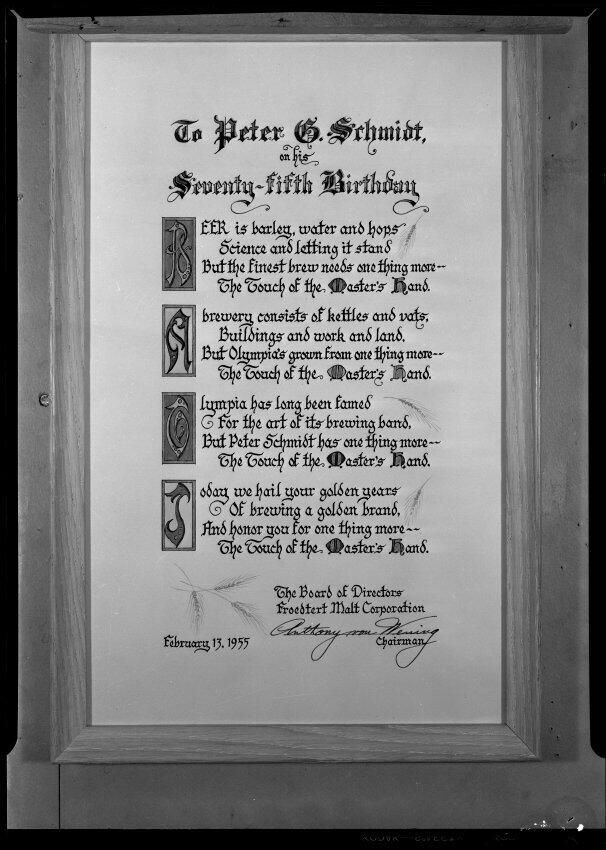 To Peter G. Schmidt,
on his
Seventy-fifth Birthday
BEER is barley, water and hops
Science and letting it stand
But the finest brew needs one thing more--
The Touch of the Master's Hand.
A brewery consists of kettles and vats,
Buildings and work and land,
But Olympia's grown from one thing more--
The Touch of the Master's Hand.
Olympia has long been famed
For the art of its brewing band,
But Peter Schmidt has one thing more--
The Touch of the Master's Hand.
Today we hail your golden years
Of brewing a golden brand,
And honor you for one thing more--
The Touch of the Master's Hand.
The Board of Directors
Froedtert Malt Corporation
Anthony von Wening
February 13, 1955
Chairman